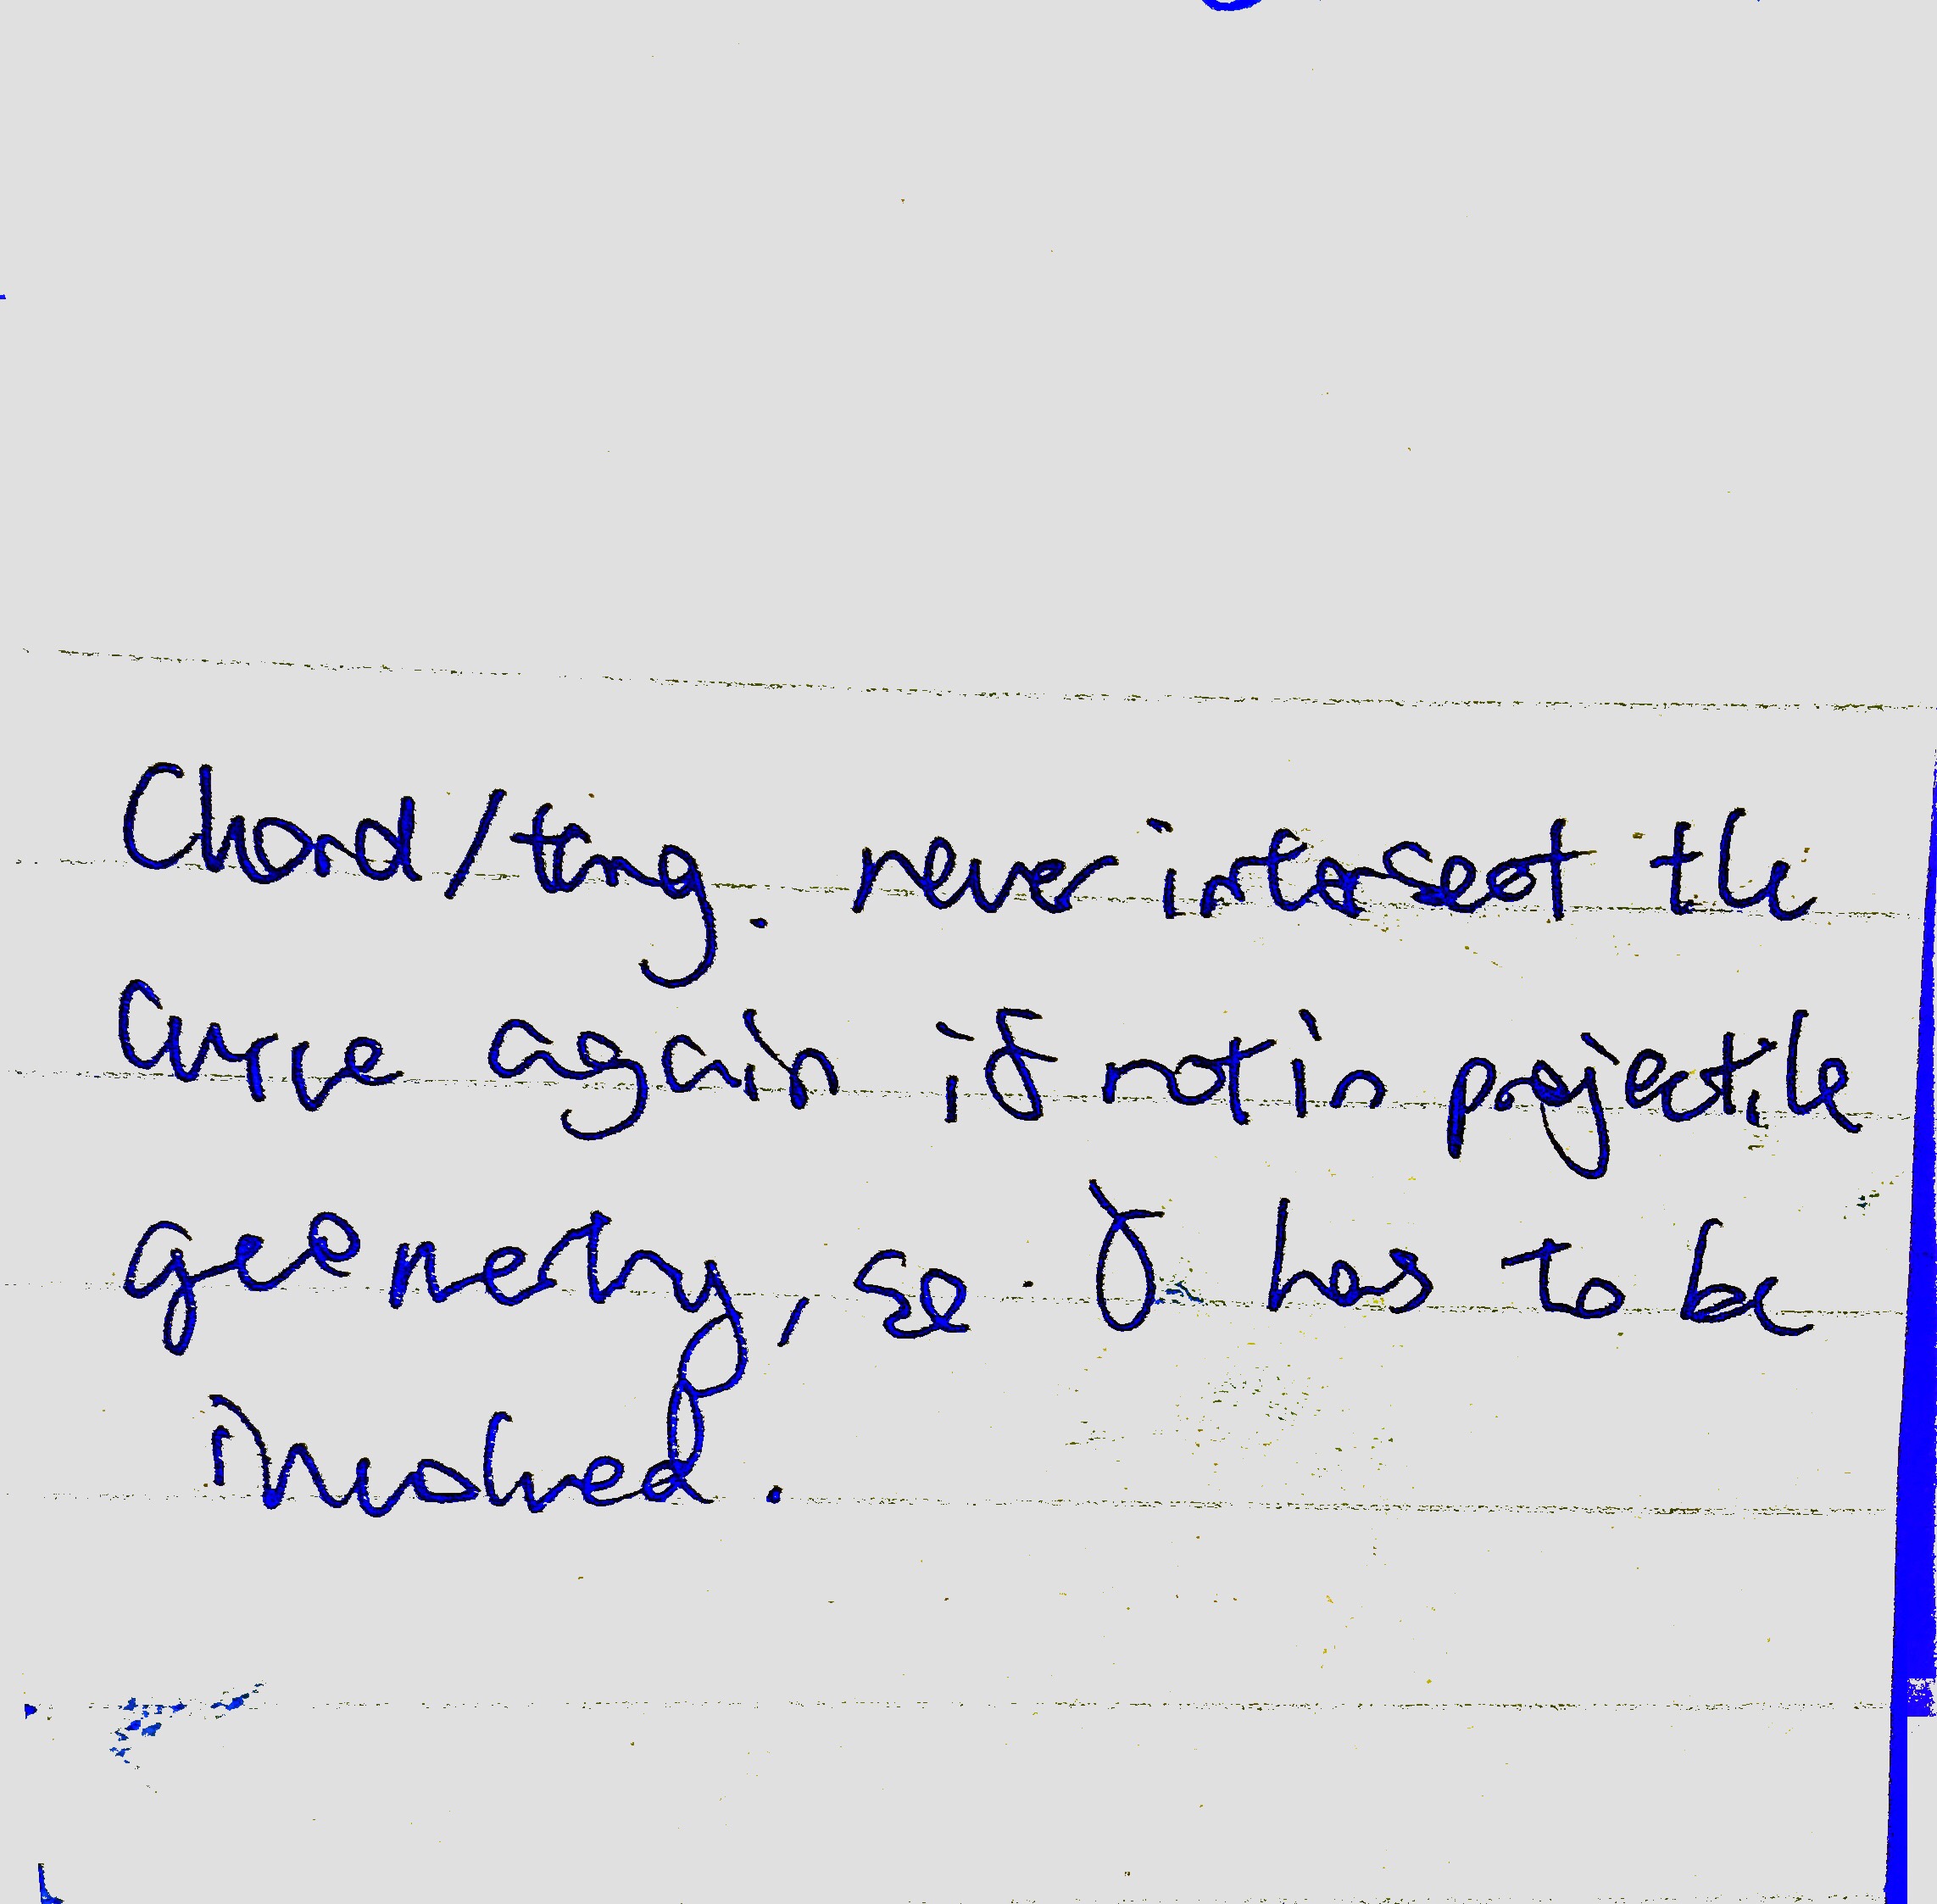 Chord/tang. never intersect the
curve again if not in projectile
geometry, so γ has to be
involved.